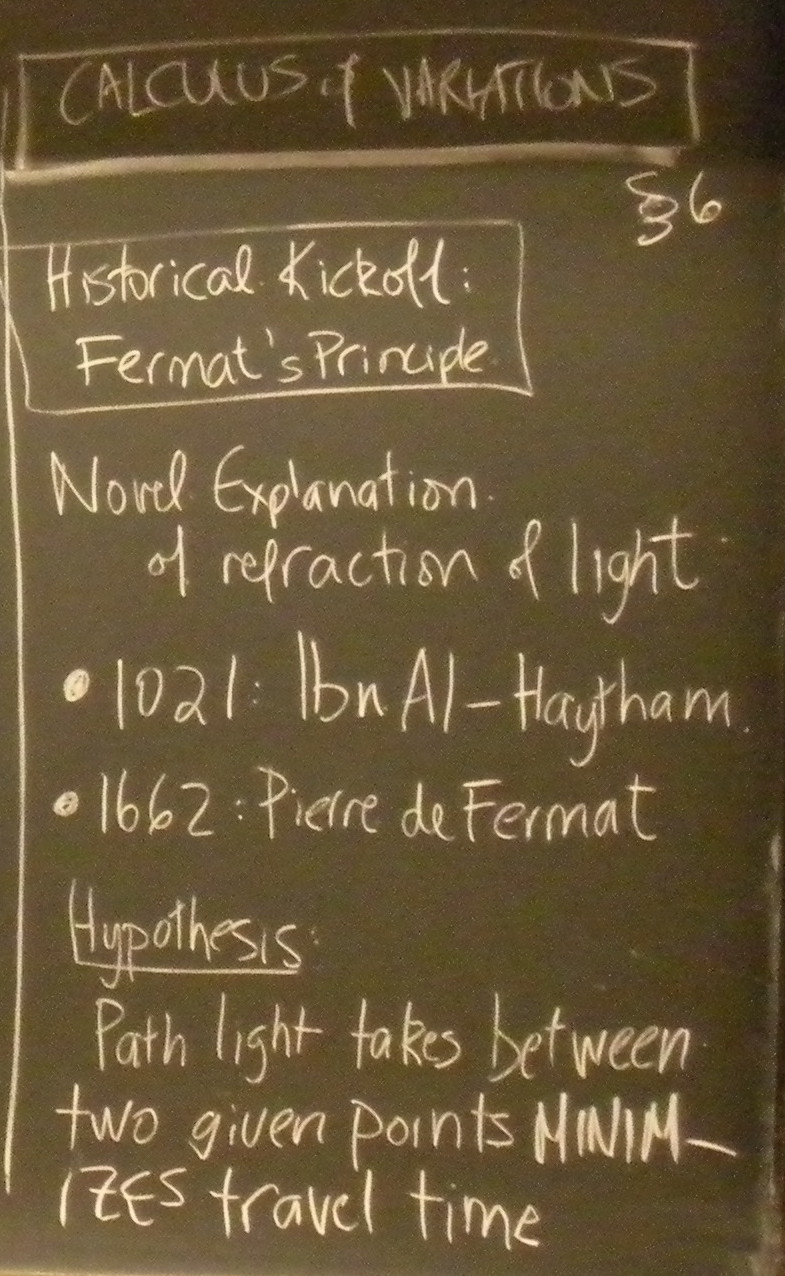 CALCULUS of VARIATIONS
§6
Historical Kickoff:
Fermat's Principle
Novel Explanation
of refraction of light
• 1021: Ibn Al-Haytham
• 1662: Pierre de Fermat
Hypothesis:
Path light takes between
two given points MINIM-
IZES travel time